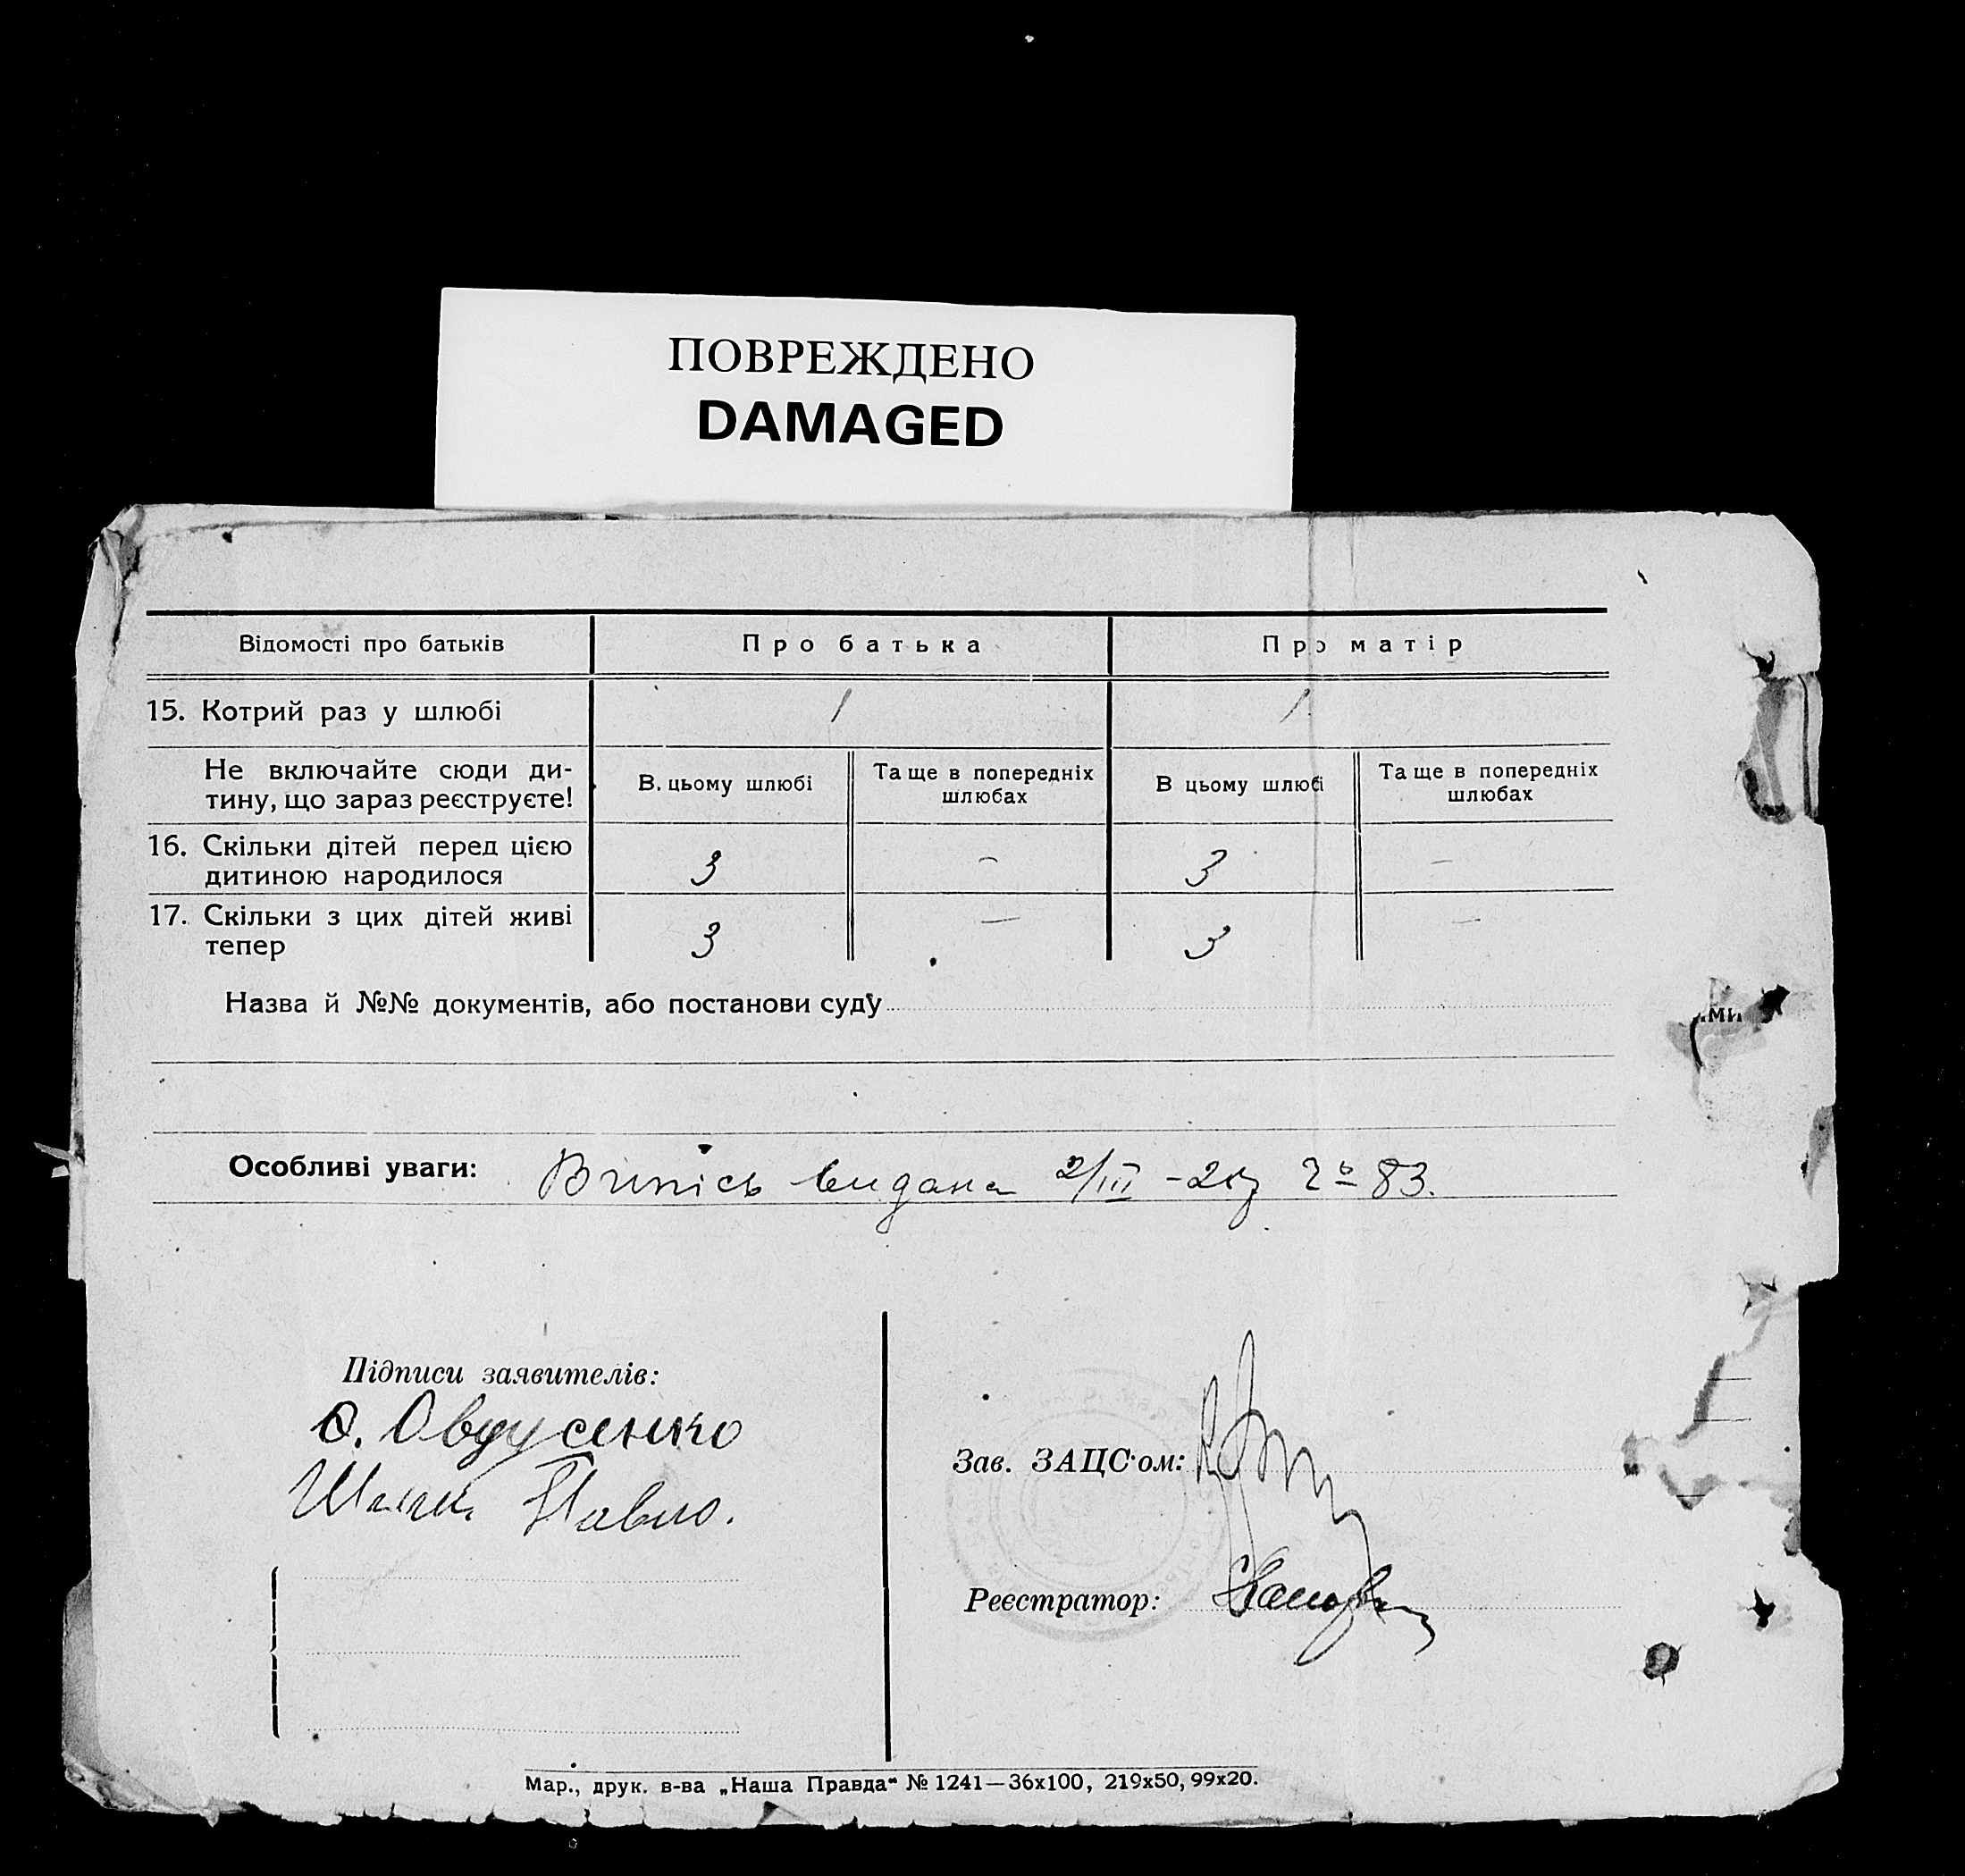 ПОВРЕЖДЕНО
DAMAGED
Відомості про батьків
Про батька
Про матір
15. Котрий раз у шлюбі
1
1
Не включайте сюди ди-
тину, що зараз реєструєте!
В цьому шлюбі
Та ще в попередніх
шлюбах
В цьому шлюбі
Та ще в попередніх
шлюбах
16. Скільки дітей перед цією
дитиною народилося
3
–
3
–
17. Скільки з цих дітей живі
тепер
3
–
3
–
Назва й №№ документів, або постанови суду
ми
Особливі уваги: Випісь видана 2/III 83.
Підписи заявителів:
О. Овдусенко
Павло.
Зав. ЗАЦС'ом:
Реєстратор:
Мар., друк. в-ва „Наша Правда“ № 1241—36х100, 219х50, 99х20.